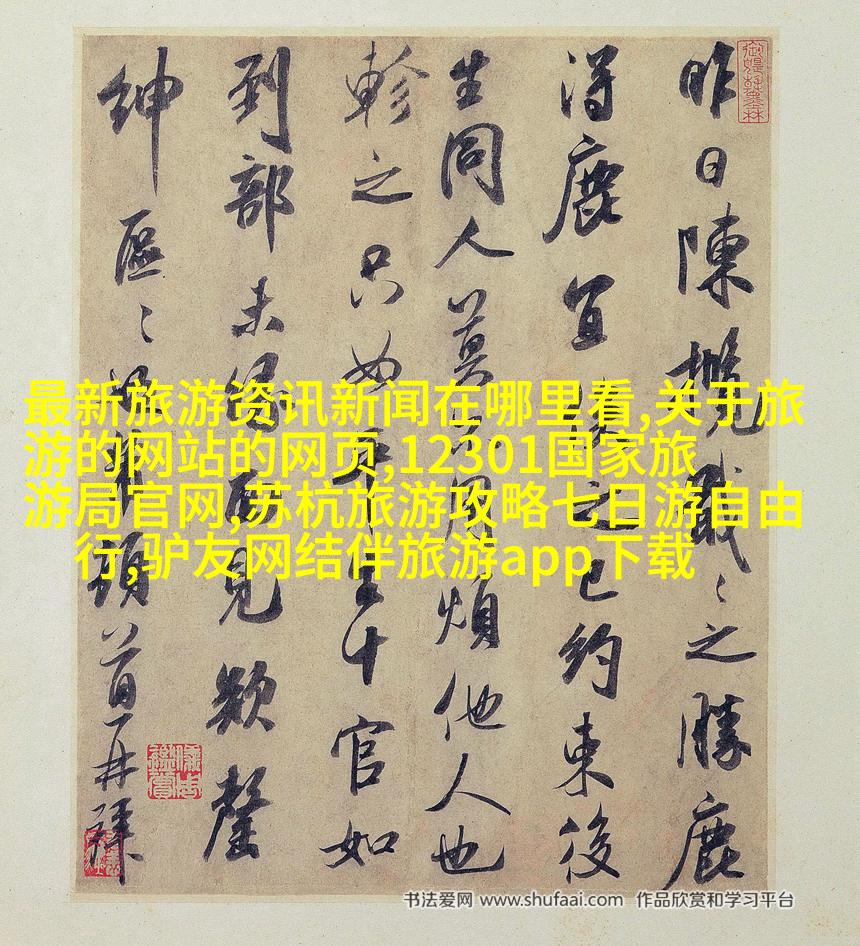 昨日陳攬戢〻之勝鹿
得鹿宜
之已约束後
生同人莫
用煩他人也
軫之只如
平生十官如
到部未
面見欵罄
紳區〻
頓首再拜
最新旅游资讯新闻在哪里看,关于旅
游的网站的网页,12301国家旅
游局官网,苏杭旅游攻略七日游自由
行,驴友网结伴旅游app下载
书法爱网 www.shufaai.com 作品欣赏和学习平台